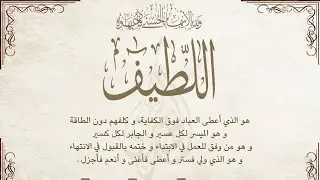 ولله الأسماء الحسنى فادعوه بها
اللطيف
هو الذي أعطى العباد فوق الكفاية، و كلفهم دون الطاقة
و هو الميسر لكل عسير و الجابر لكل كسير
و هو من وفق للعمل في الابتداء و ختمه بالقبول في الانتهاء
و هو الذي ولي فستر و أعطى فأغنى و أنعم فأجزل .